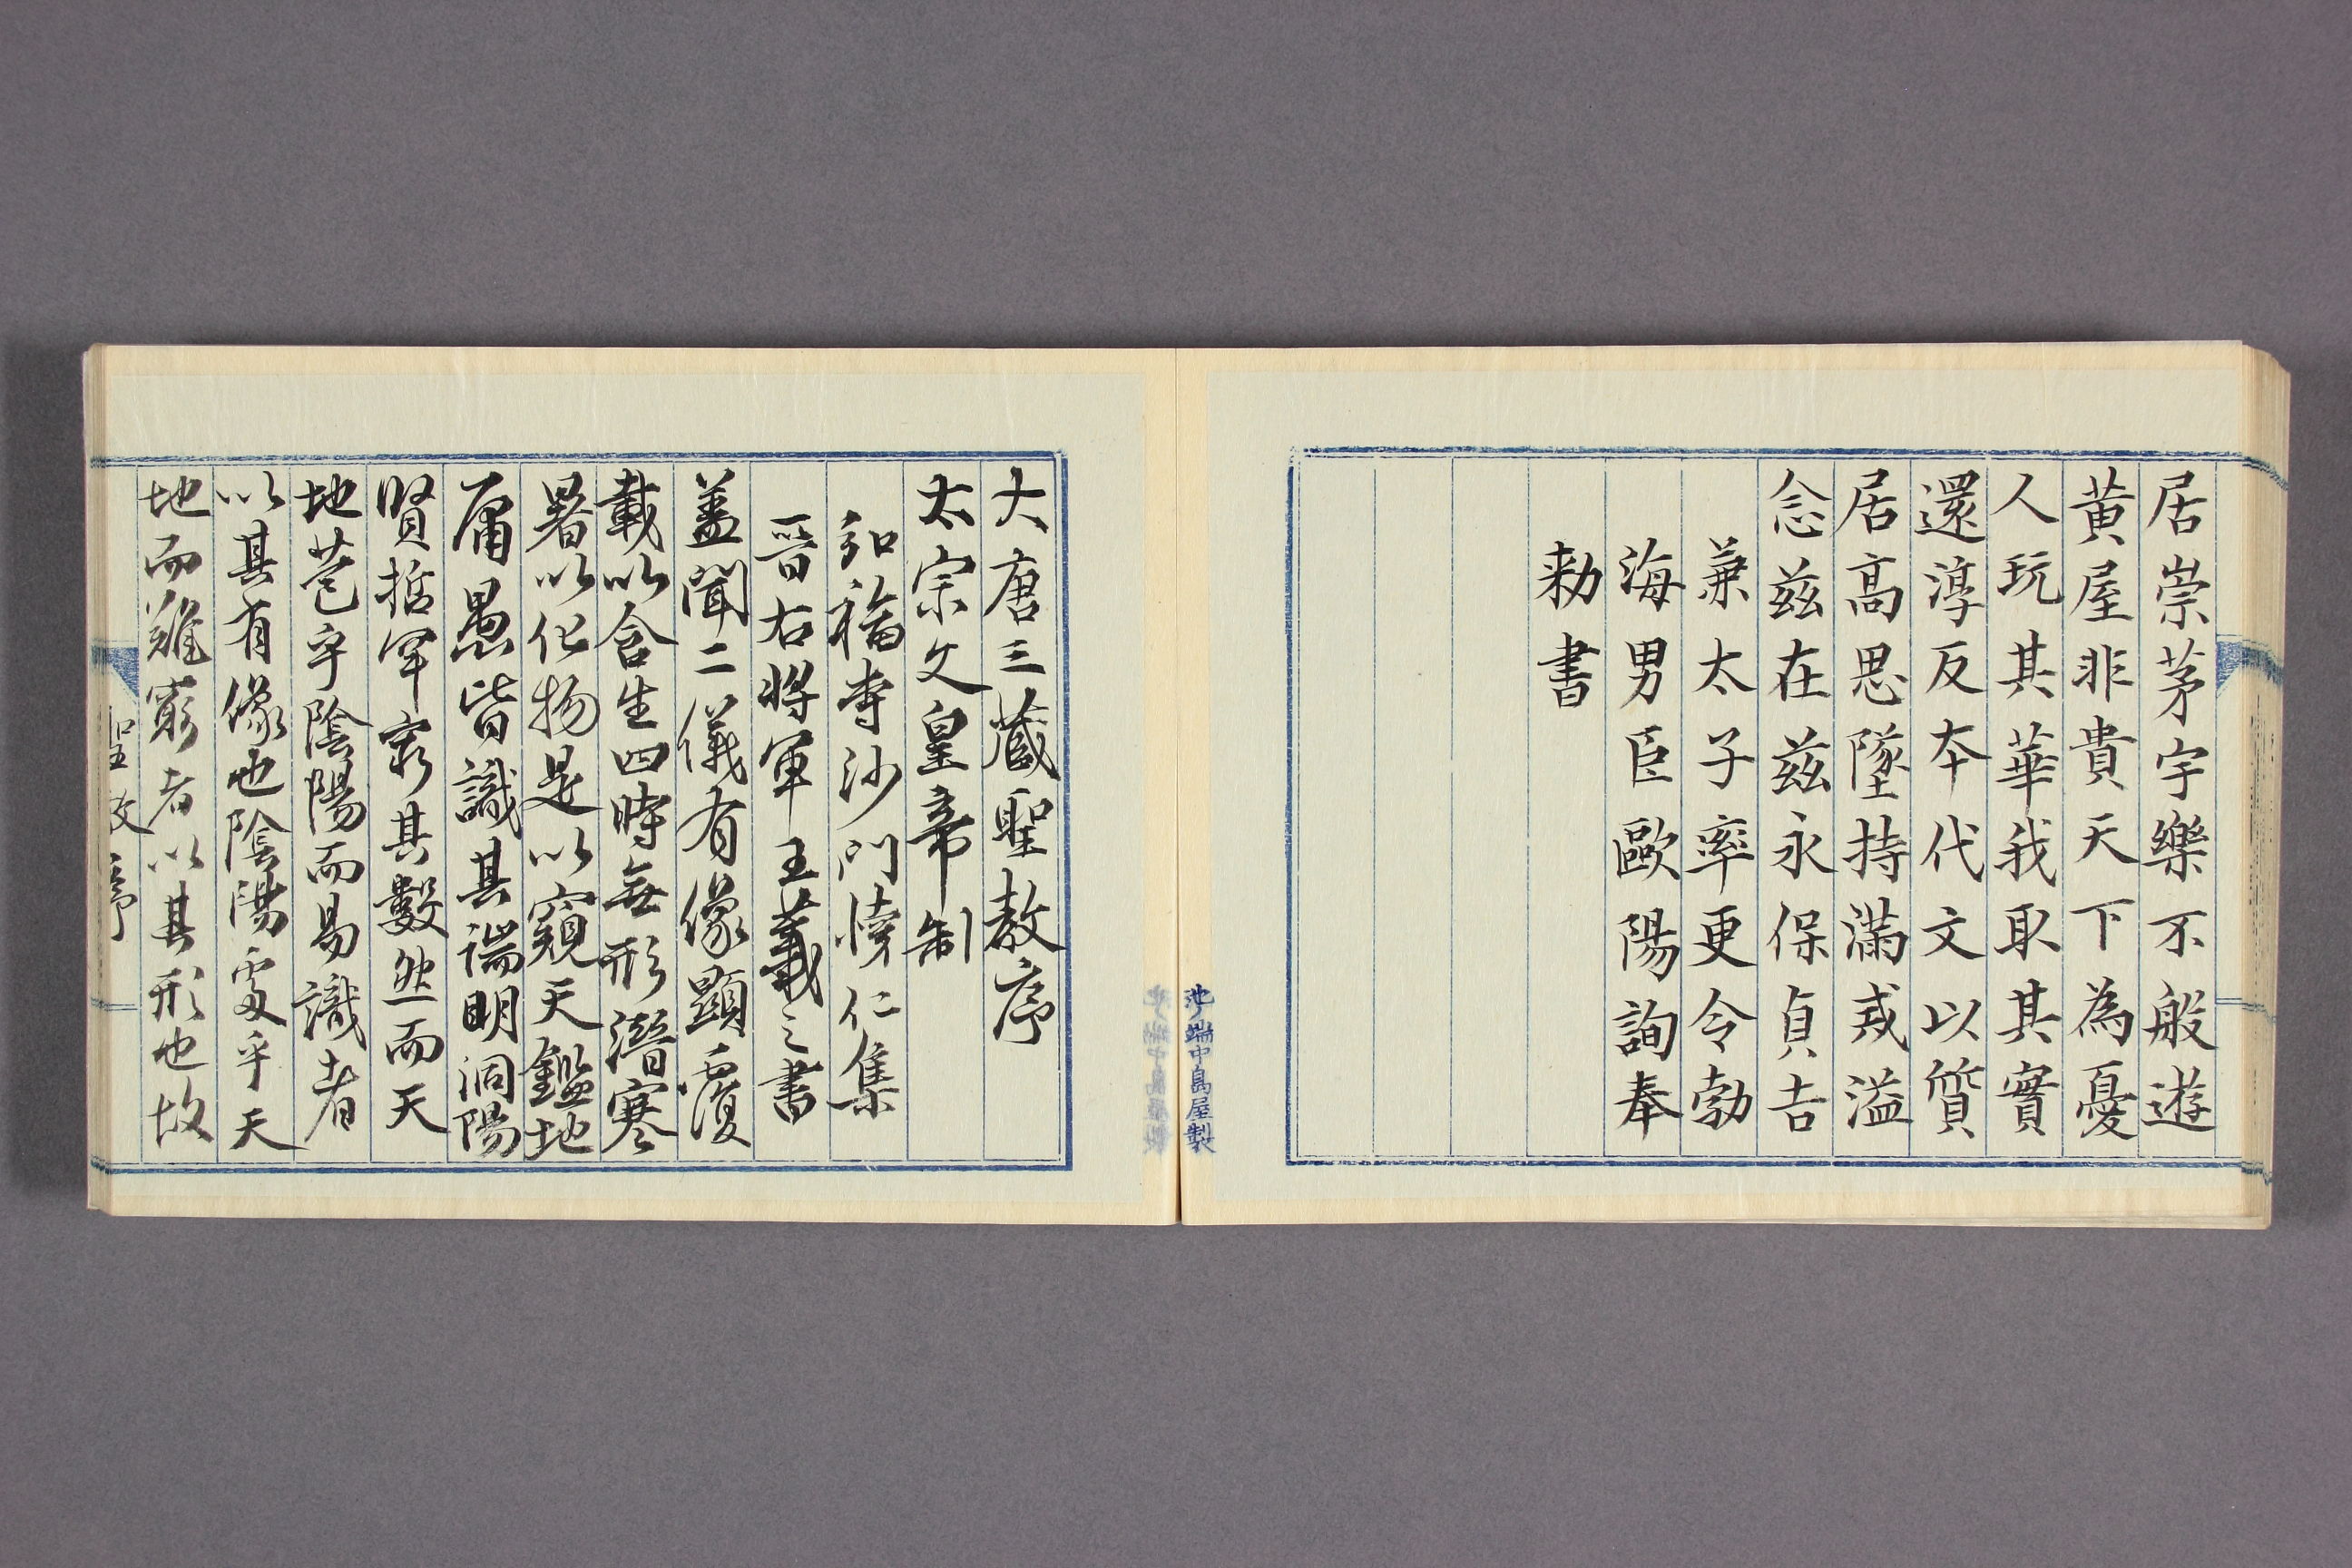 居崇茅宇樂不般遊
黄屋非貴天下為憂
人玩其華我取其實
還淳反本代文以質
居高思墜持滿戒溢
念兹在兹永保貞吉
兼太子率更令勃
海男臣歐陽詢奉
勑書
池ノ端中島屋製
大唐三藏聖教序
太宗文皇帝制
弘福寺沙門懐仁集
晉右將軍王羲之書
蓋聞二儀有像顯覆
載以含生四時無形潛寒
暑以化物是以窺天鑑地
庸愚皆識其端明洞陽
賢哲罕窮其數然而天
地苞乎陰陽而易識者
以其有像也陰陽處乎天
地而難窮者以其形也故
聖教序